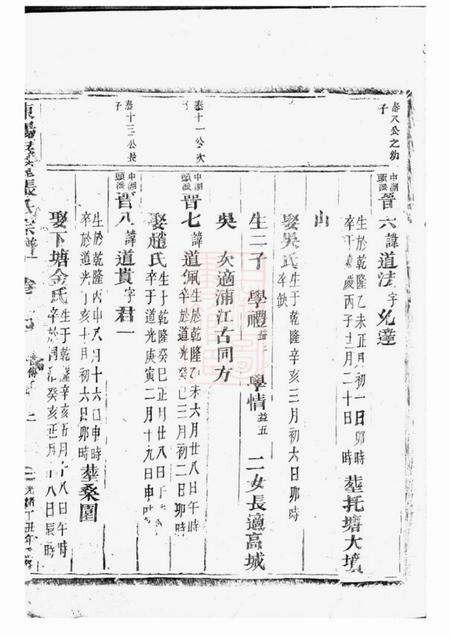 泰八公之幼
子
中湖
頭派
晉六諱道法字允達
生於乾隆乙未正月初一日卯時
卒于嘉慶丙子十二月二十日 時
塟托塘大墳
山
娶吳氏
生于乾隆辛亥三月初六日卯時
卒缺
生二子 學禮益 學情益五 二女長適高城
吳 次適浦江古同方
泰十一公次
子
中湖
頭派
晉七諱道佩
生於乾隆乙未六月廿八日午時
卒於道光癸巳三月初二日卯時
娶趙氏
生于乾隆癸巳正月廿八日
卒于道光庚寅二月十九日申時
泰十三公長
子
中湖
頭派
晉八諱道貴字君一
生於乾隆丙申八月十六日申時
卒於道光丁亥十月初六日卯時
塟桑園
娶下塘金氏
生于乾隆辛亥五月廿八日午時
卒於同治癸亥正月十八日辰時
張氏宗譜
光緒丁丑年